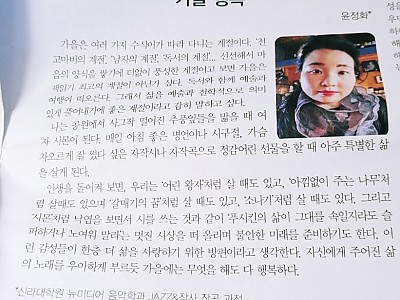 가을 행복
윤정화*
가을은 여러 가지 수식어가 따라 다니는 계절이다. '천
고마비의 계절', '남자의 계절', '독서의 계절'... 선선해서 마
음의 양식을 쌓기에 더없이 풍성한 계절이고 보면 가을은
책읽기 최고의 계절이 아닌가 싶다. 독서와 함께 예술과
여행이 떠오른다. 그래서 삶을 예술과 철학적으로 의미
있게 풀어내기에 좋은 계절이라고 감히 말하고 싶다.
나는 공원에서 사그락 떨어진 추풍잎들을 밟을 때 여
자 시몬이 된다. 매일 아침 좋은 명언이나 시구절, 가슴
차오르게 잘 썼다 싶은 자작시나 자작곡으로 정감어린 선물을 할 때 아주 특별한 삶
을 살게 된다.
인생을 돌이켜 보면, 우리는 '어린 왕자'처럼 살 때도 있고, '아낌없이 주는 나무'처
럼 살때도 있으며 '갈매기의 꿈'처럼 살 때도 있고, '소나기'처럼 살 때도 있다. 그리고
'시몬'처럼 낙엽을 보면서 시를 쓰는 것과 같이 '푸시킨의 삶이 그대를 속일지라도 슬
퍼하거나 노여워 말라'는 멋진 시상을 떠 올리며 불안한 미래를 준비하기도 한다. 이
런 감성들이 한층 더 삶을 사랑하기 위한 방편이라고 생각한다. 자신에게 주어진 삶
의 노래를 우아하게 부르듯 가을에는 무엇을 해도 다 행복하다.
*신라대학원 뉴미디어 음악학과 JAZZ&작사 작곡 과정